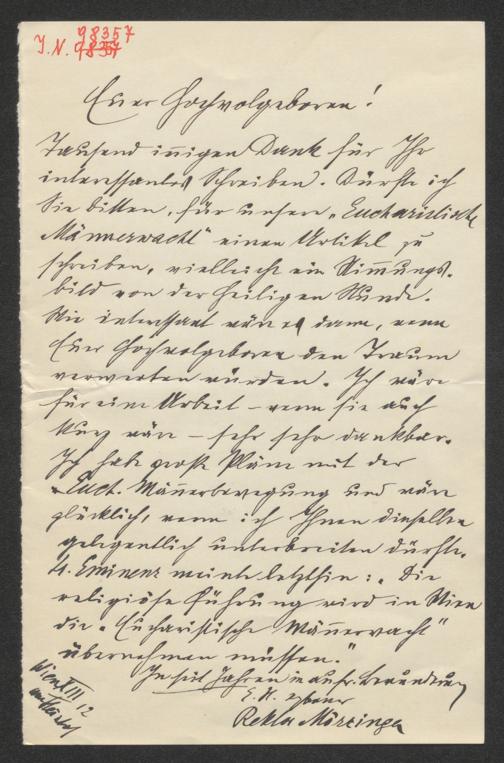 J. N. 98357
98357
Euer Hochwolgeboren!
Tausend innigen Dank für Ihr
interessantes Schreiben. Dürfte ich
Sie bitten, für unsere „Eucharistische
Männerwacht" einen Artikel zu
schreiben, vielleicht ein Stimmungs-
bild von der heiligen Stunde.
Wie interessant wäre es dann, wenn
Euer Hochwolgeboren den Traum
verwerten würden. Ich wäre
für eine Arbeit – wenn sie auch
kurz wäre – sehr sehr dankbar.
Ich habe große Pläne mit der
„Euch. Männerbewegung und wäre
glücklich, wenn ich Ihnen dieselben
gelegentlich unterbreiten dürfte.
S. Eminenz meinte letzthin: „Die
religiöse Führung wird in Wien
die „Eucharistische Männerwacht"
übernehmen müssen."
In seit Jahren in aufr. Bewunderung
E. H. ergebener
Wien XIII 12